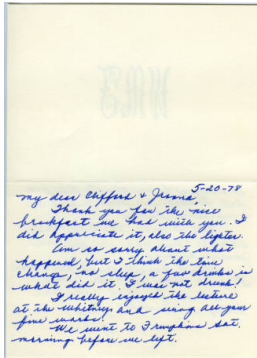 5-20-78
My dear Clifford &
Thank you for the nice
breakfast we had with you. I
did appreciate it, also the lighter.
Am so sorry about what
happened, but I think the time
change, no sleep, a few drinks is
what did it. I was not drunk!
I really enjoyed the lecture
at the Whitney and seeing all your
fine works!
We went to Sat.
morning before we left.